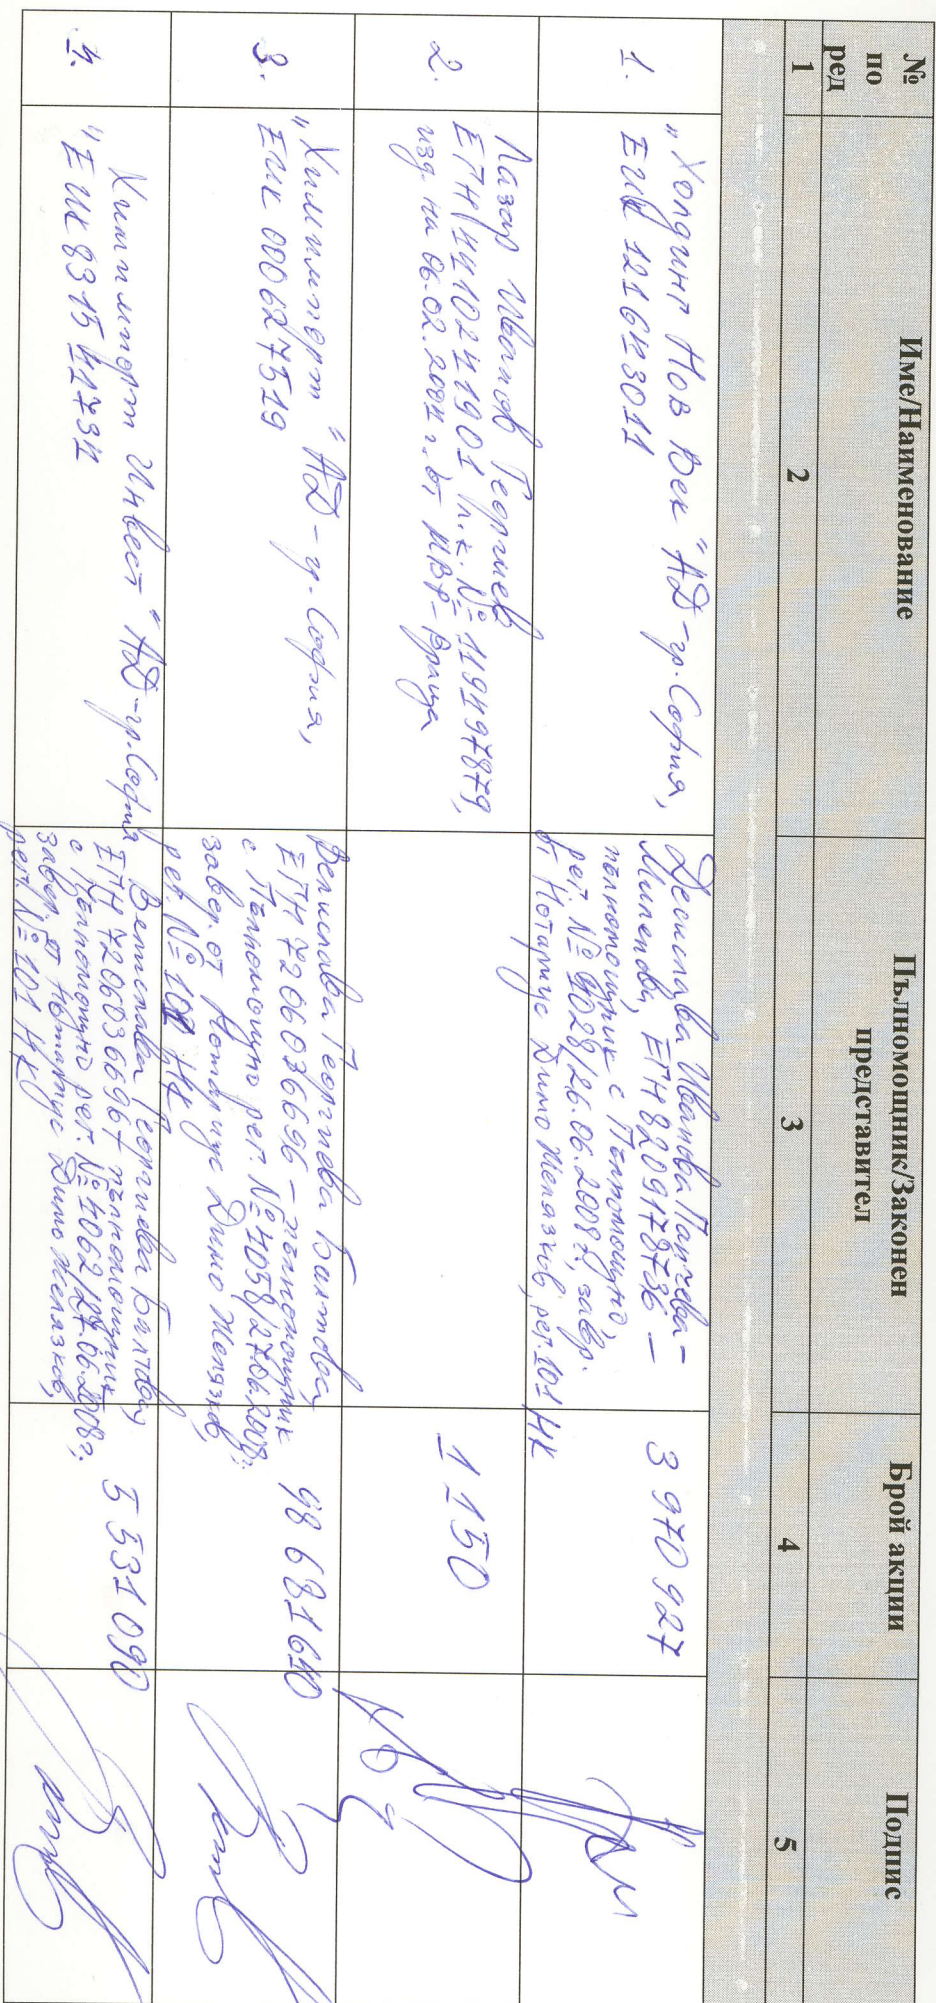 № по ред
Име/Наименование
Пълномощник/Законен представител
Брой акции
Подпис
1
2
3
4
5
1.
„Холдинг Нов Век" АД-гр.София,
ЕИК 121643011
Десислава Иванова Панчева-
Миленова, ЕГН 8209178736 –
пълномощник с Пълномощно,
рег. № 4028/26.06.2008г., завер.
от Нотариус Димо Желязков, рег.101 НК
3 970 927
2.
Лазар Иванов Георгиев
ЕГН 4410241901 л.к. № 119497879,
изд. на 06.02.2004 г. от МВР-Враца
1 150
3.
„Химимпорт" АД-гр. София,
ЕИК 000627519
Велислава Георгиева
ЕГН 7206036696 – пълномощник
с Пълномощно рег. № 4058/27.06.2008г.
завер. от Нотариус Димо Желязков,
рег. № 101 НК
98 681 640
4.
„Химимпорт Инвест" АД-гр.София
ЕИК 831541734
Велислава Георгиева
ЕГН 7206036696 – пълномощник
с Пълномощно рег. № 4062/27.06.2008г.
завер. от Нотариус Димо Желязков,
рег. № 101 НК
5 531 090